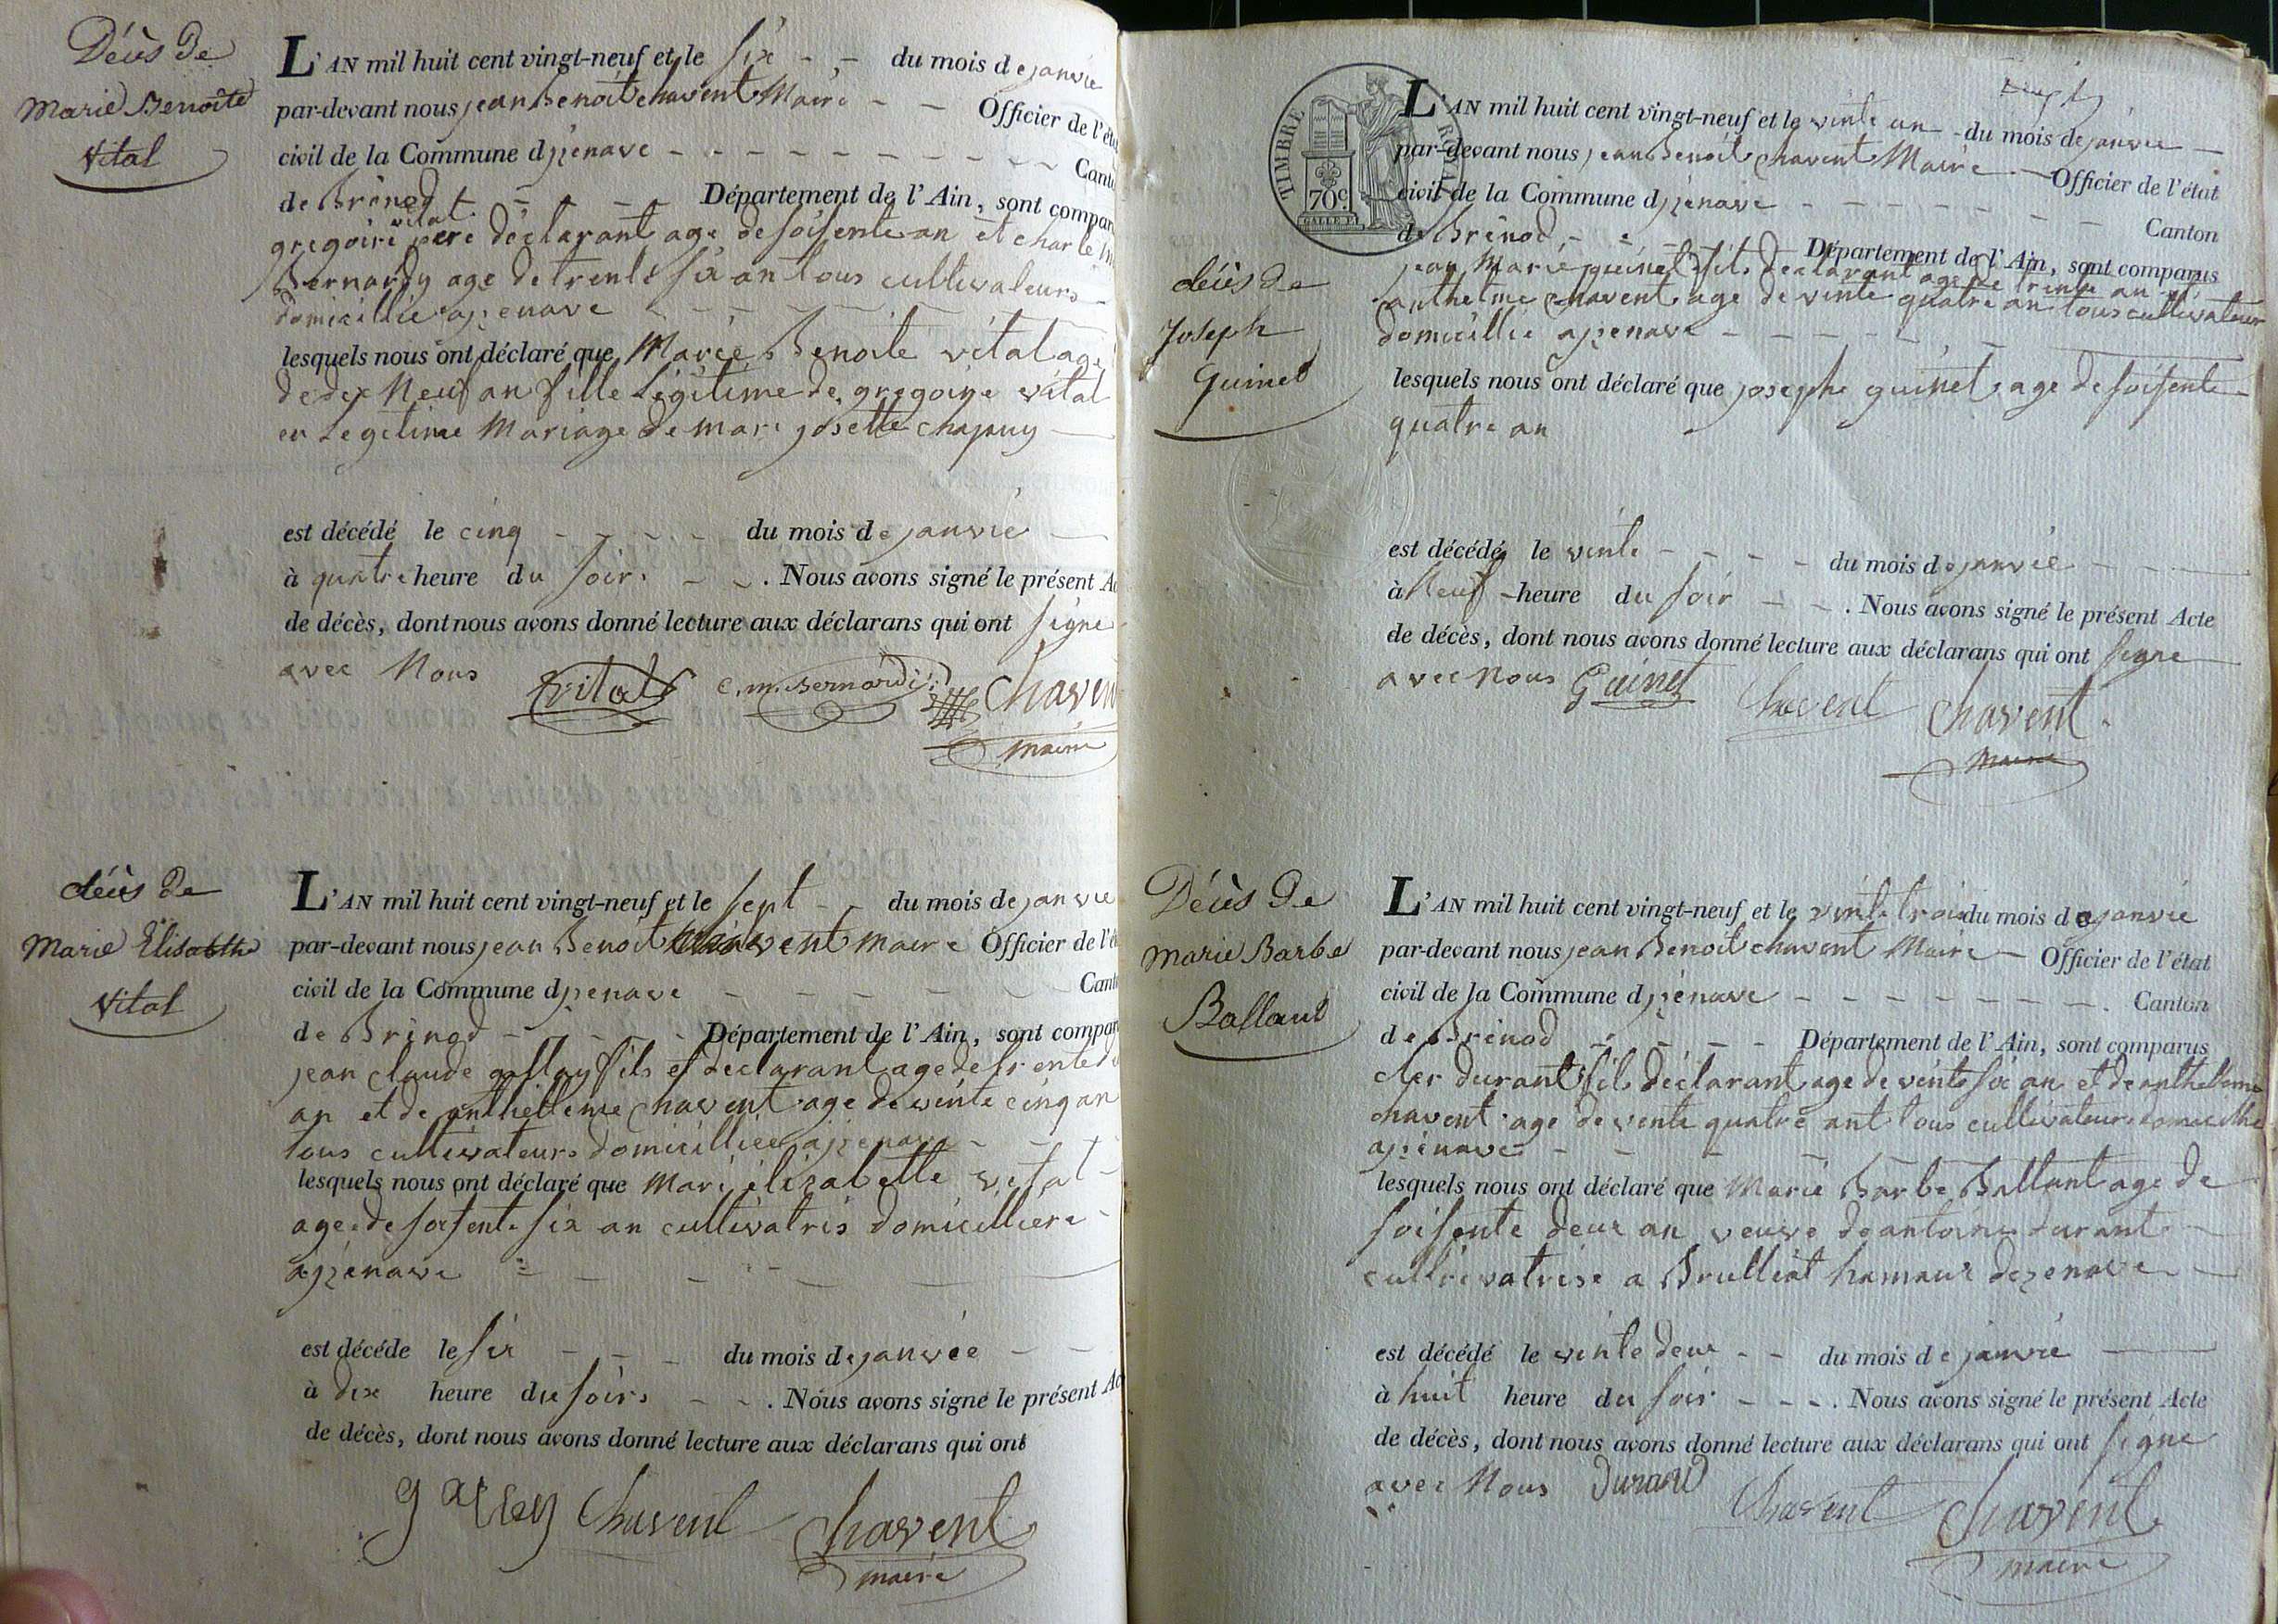 Décès De
Marie Benoîte
Vital
L'AN mil huit cent vingt-neuf et le six - - du mois de janvie
par-devant nous jean Benoit chavent Maire - - Officier de l'éta
civil de la Commune djzenave - - - - - - - - - Cant
de Brénod - - - Département de l'Ain, sont compar
vital
gregoire pere déclarant age de soisente an et charle
Bernardy age de trente six an tous cultivateurs
domicillie ajzenave - - - -
lesquels nous ont déclaré que Marie Benoite vital age
de dix Neuf an fille Légitime de gregoire vital
en Legetime Mariage de mari josette chapuy
est décédé le cinq - - - - du mois de janvié
à quatre heure du soir - - . Nous avons signé le présent Ac
de décès, dont nous avons donné lecture aux déclarans qui ont signe
avec Nous vital C. m. Bernardi Chaven
maire
décès De
Marie Elisabethe
Vital
L'AN mil huit cent vingt-neuf et le sept - - du mois de janvie
par-devant nous jean Benoit chavent Maire Officier de l'ét
civil de la Commune djzenave - - - - - Cant
de Brénod - - - - Département de l'Ain, sont compar
jean claude gallay fils et declarant age de trente
an et de anthelleme chavent age de vinte cinq an
tous cultivateurs domicilliee ajzenave - - -
lesquels nous ont déclaré que Mari élizabette vital -
agee de soisente six an cultivatris domicilliere -
ajzenave - - - -
est décéde le six - - - du mois de janvée - -
à dix heure du soirs - - . Nous avons signé le présent Ac
de décès, dont nous avons donné lecture aux déclarans qui ont
gallay Chavent Chavent
maire
TIMBRE ROYAL
70c.
L'AN mil huit cent vingt-neuf et le vinte un - du mois de janvié -
par-devant nous jean Benoit chavent Maire - Officier de l'état
civil de la Commune djzénave - - - - - - - Canton
de Brénod - - - - Département de l'Ain, sont comparus
décès De
Joseph
Guinet
jean Marie guinet fils declarant age de trente an et
anthelme chavent age de vinte quatre an tous cultivateur
domicillie ajzenave - - - - - -
lesquels nous ont déclaré que josephe guinet age de soisente
quatre an
est décédé le vinte - - - - du mois de janvié - - -
à Neuf - heure du soir - - . Nous avons signé le présent Acte
de décès, dont nous avons donné lecture aux déclarans qui ont signe
avec Nous Guinet Chavent Chavent
Maire
Décès De
Marie Barbe
Ballant
L'AN mil huit cent vingt-neuf et le vinte trois du mois de janvié
par-devant nous jean Benoit chavent Maire - Officier de l'état
civil de la Commune djzénave - - - - - - - - Canton
de Brénod - - - - Département de l'Ain, sont comparus
durant fils déclarant age de vinte six an et de anthelleme
chavent age de vente quatre ant tous cultivateurs domicillie
ajzenave - - - -
lesquels nous ont déclaré que Marie Barbe Ballant age de
soisente deux an veuve de antoine durant -
cultrivatrise a Brulliat hamaux dezenave - -
est décédé le vinte deux - - du mois de janvié -
à huit heure du soir - - - . Nous avons signé le présent Acte
de décès, dont nous avons donné lecture aux déclarans qui ont signe
avec Nous Durand Chavent Chavent
maire